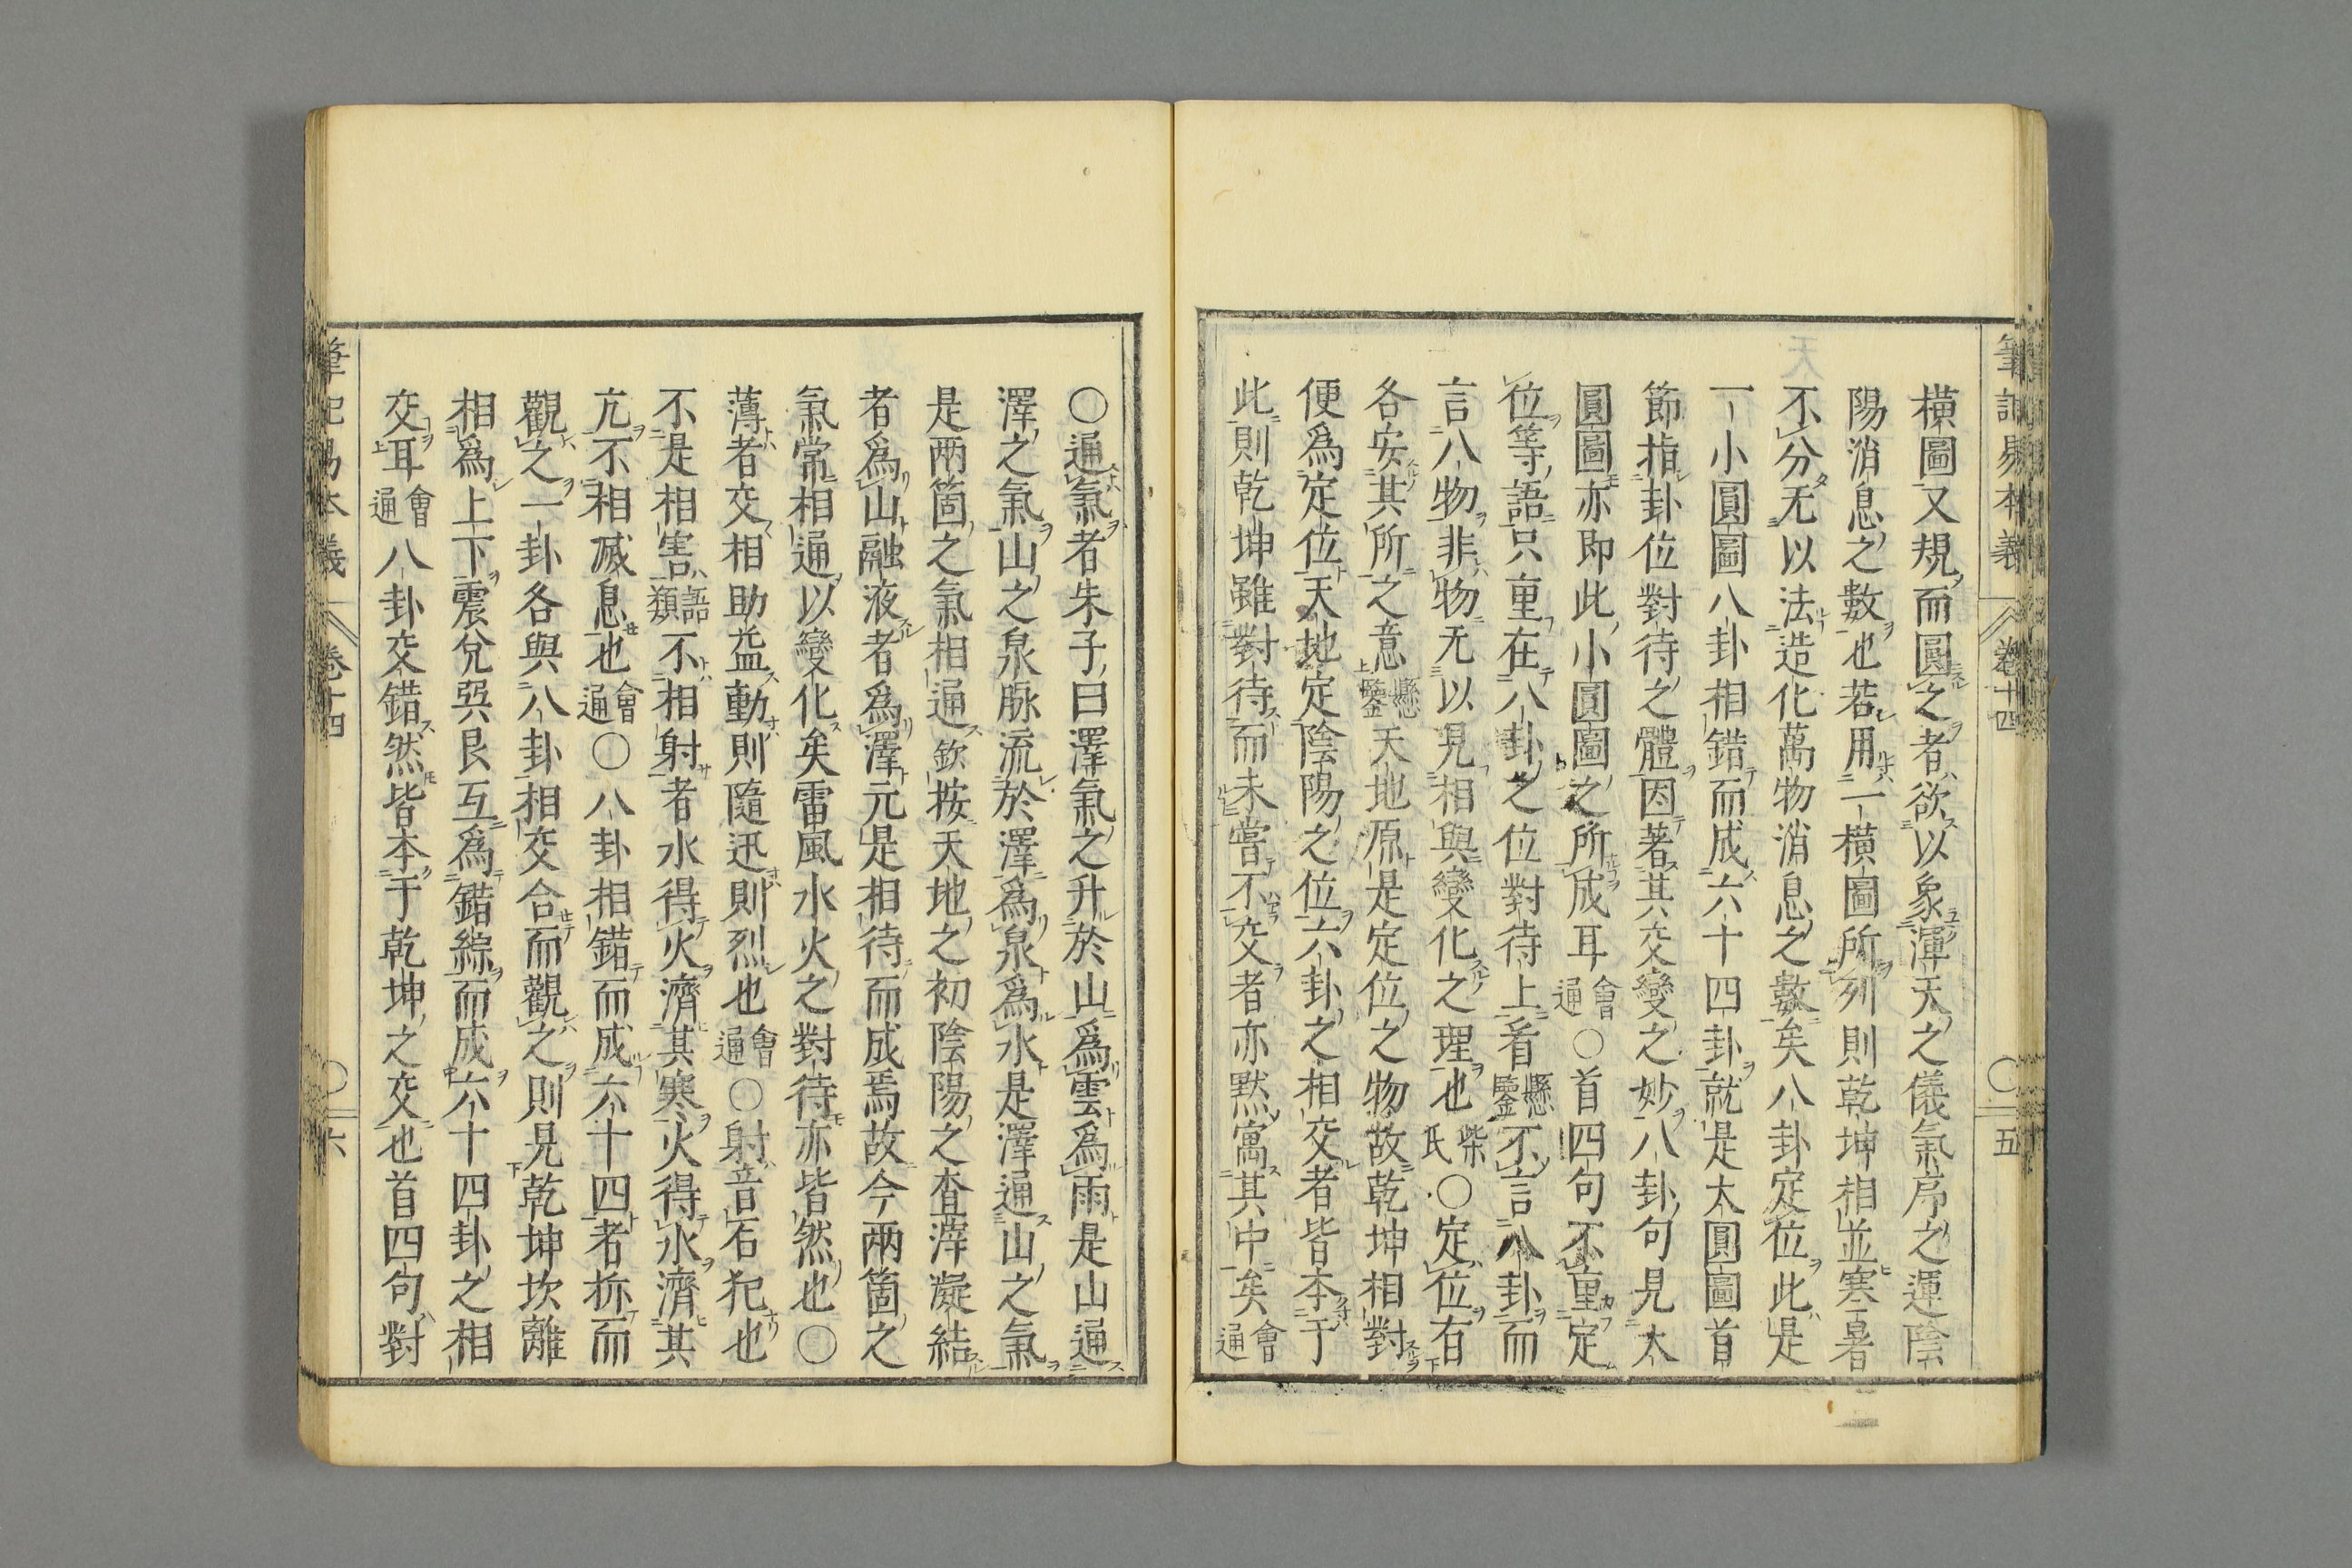 筆記易本義 卷十四 〇 五
橫圖又規而圓之者欲以象渾天之儀氣序之運陰
陽消息之數也若用一橫圖所列則乾坤相並寒暑
不分无以法造化萬物消息之數矣八卦定位此是
一小圓圖八卦相錯而成六十四卦就是大圓圖首
節指卦位對待之體因著其交變之妙八卦句見大
圓圖亦即此小圓圖之所成耳會通〇首四句不重定
位等語只重在八卦之位對待上看懸鑒不言八卦而
言八物非物无以見相與變化之理也柴氏〇定位有
各安其所之意懸鑒天地原是定位之物故乾坤相對
便為定位天地定陰陽之位六卦之相交者皆本于
此則乾坤雖對待而未嘗不交者亦默寓其中矣會通
〇通氣者朱子曰澤氣之升於山為雲為雨是山通
澤之氣山之泉脉流於澤為泉為水是澤通山之氣
是兩箇之氣相通欽按天地之初陰陽之查滓凝結
者為山融液者為澤元是相待而成焉故今兩箇之
氣常相通以變化矣雷風水火之對待亦皆然也〇
薄者交相助益動則隨迅則烈也會通〇射音石犯也
不是相害語類不相射者水得火濟其寒火得水濟其
亢不相滅息也會通〇八卦相錯而成六十四者柝而
觀之一卦各與八卦相交合而觀之則見乾坤坎離
相為上下震兌巽艮互為錯綜而成六十四卦之相
交耳會通八卦交錯然皆本于乾坤之交也首四句對
筆記易本義 卷十四 〇 六